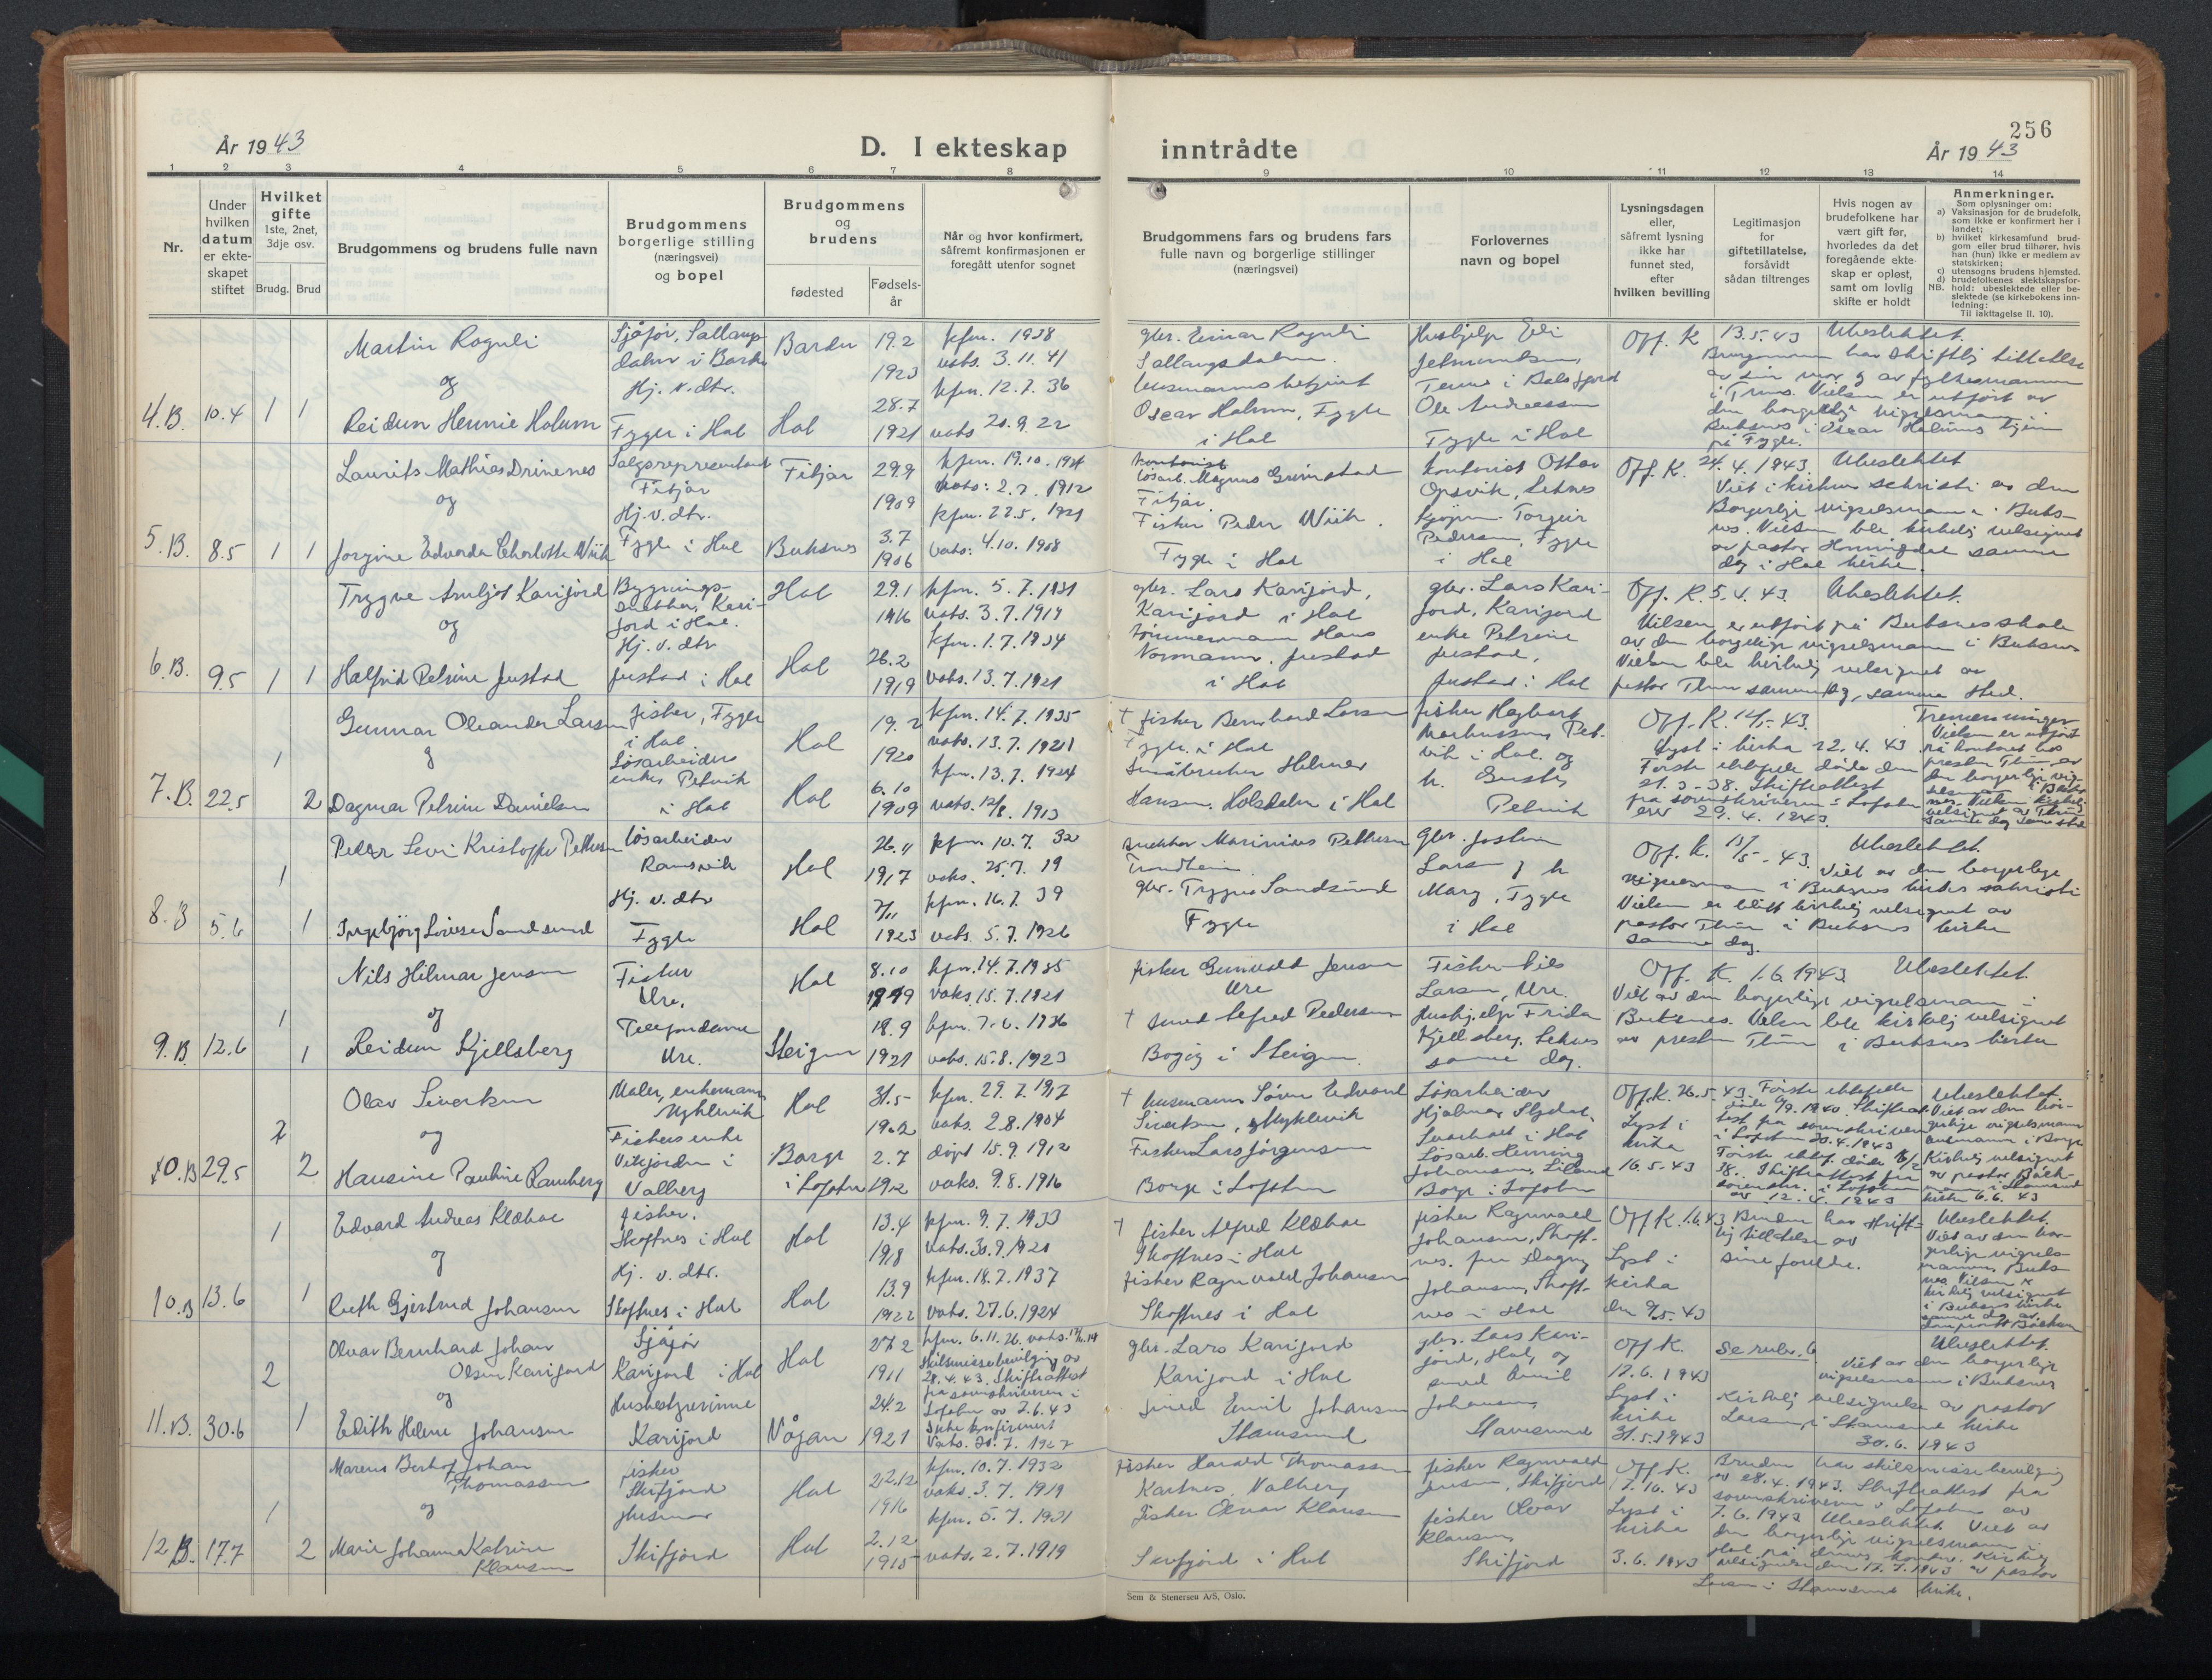 256
År 1943
D. I ekteskap
inntrådte
År 1943
1 2 3 4 5 6 7 8 9 10 11 12 13 14
Nr.
Under
hvilken
datum
er ekte-
skapet
stiftet
Hvilket
gifte
1ste, 2net,
3dje osv.
Brudg. Brud
Brudgommens og brudens fulle navn
Brudgommens
borgerlige stilling
(næringsvei)
og bopel
Brudgommens
og
brudens
fødested
Fødsels-
år
Når og hvor konfirmert,
såfremt konfirmasjonen er
foregått utenfor sognet
Brudgommens fars og brudens fars
fulle navn og borgerlige stillinger
(næringsvei)
Forlovernes
navn og bopel
Lysningsdagen
eller,
såfremt lysning
ikke har
funnet sted,
efter
hvilken bevilling
Legitimasjon
for
giftetillatelse,
forsåvidt
sådan tiltrenges
Hvis nogen av
brudefolkene har
vært gift før,
hvorledes da det
foregående ekte-
skap er opløst,
samt om lovlig
skifte er holdt
Anmerkninger.
Som oplysninger om:
a) Vaksinasjon for de brudefolk,
som ikke er konfirmert her i
landet;
b) hvilket kirkesamfund brud-
gom eller brud tilhører, hvis
han (hun) ikke er medlem av
statskirken;
c) utensogns brudens hjemsted.
d) brudefolkenes slektskapsfor-
hold: ubeslektede eller be-
slektede (se kirkebokens inn-
ledning:
NB.
Til iakttagelse II. 10).
4.B. 10.4 1 1
Martin Roguli
og
Reidun Hennie Holum
Sjåfør,
Hj. v. dtr.
Fygle i Hol
Bardu
Hol
19.2
1923
28.7
1921
kfm. 1938
vaks. 3.11.41
kfm. 12.7.36
vaks 20.9.22
gbr. Einar Roguli
Oscar Holum, Fygle
i Hol
Ole Andreassen
Fygle i Hol
Off. K 13.5.43 Ubeslektet.
på Fygle.
5.B. 8.5 1 1
Laurits Mathias Drinenes
og
Jorgine Edvarda Charlotte Wiik
Salgsrepresentant
Fitjar
Hj. v. dtr.
Fygle i Hol
Fitjar
Buksnes
29.9
1909
3.7
1906
kfm. 19.10.1924
vaks: 2.7.1912
kfm. 22.5.1921
vaks: 4.10.1908
Magnus Grimstad
Fitjar.
Fisker Peder Wiik.
Fygle i Hol
kontorist Ottar
Opsvik, Leknes
Torgeir
Pedersen, Fygle
i Hol
Off. K. 24.4.1943. Ubeslektet
Viet i kirkens sakristi av den
Borgerlige vigselsmann i Buks-
nes. Vielsen ble kirkelig velsignet
av pastor Honningdal samme
dag i Hol kirke.
6.B. 9.5 1 1
Trygve Arnljot Karijord
og
Halfrid Petrine Justad
Bygnings-
snekker, Kari-
jord i Hol.
Hj. v. dtr
Justad i Hol
Hol
Hol
29.1
1916
26.2
1919
kfm. 5.7.1931
vaks. 3.7.1919
kfm. 1.7.1934
vaks. 13.7.1921
gbr. Lars Karijord,
Karijord i Hol
tømmermann Hans
Normann. Justad
i Hol
gbr. Lars Kari-
jord, Karijord
enke Petrine
Justad,
Justad i Hol
Off. K. 5.4.43. Ubeslektet.
Vielsen er utført på Buksnes skole
av den borgerlige vigselsmann i Buksnes
Vielsen ble kirkelig velsignet av
pastor Thun samme dag, samme sted.
7.B. 22.5 1 2
Gunnar Oleander Larsen
og
Dagmar Petrine Danielsen
fisker, Fygle
i Hol
Løsarbeiders
enke Petvik
i Hol
Hol
Hol
19.2
1920
6.10
1909
kfm. 14.7.1935
vaks. 13.7.1921
kfm. 13.7.1924
vaks. 12/8. 1913
† fisker Bernhard Larsen
Fygle i Hol
Småbruker Hilmer
Hansen. Holsdalen i Hol
fisker Hagbart
Markussen, Pet-
vik i Hol. og
h. Gusta,
Petvik
Off. K. 12/5-43.
Lyst i kirka 22.4.43.
Første ektefelle døde den
21.3-38. Skifteattest
fra sorenskriveren i Lofoten
av 29.4.1943.
Tremenninger
Vielsen er utført
på kontoret hos
presten Thun av
den borgerlige vig-
selsmann i Buks-
nes. Vielsen kirkelig
velsignet av Thun
samme dag samme sted
8.B 5.6 1 1
Peder Levi Kristoffer Pettersen
Ingebjørg Lovise Sandsund
Løsarbeider
Ramsvik
Hj. v. dtr
Fygle
Hol
Hol
26.11
1917
7/11
1923
kfm 10.7.32
vaks. 25.7.19
kfm. 16.7.39
vaks 5.7.1926
snekker Marinius Pettersen
Trondheim.
gbr. Trygve Sandsund
Fygle
Gbr. Jostein
Larsen og h
Mary, Fygle
i Hol
Off. K. 15/5-43. Ubeslektet.
Viet av den borgerlige
vigselsmann i Buksnes kirkes sakristi
Vielsen er blitt kirkelig velsignet av
pastor Thun i Buksnes kirke
samme dag.
9.B 12.6 1 1
Nils Hilmar Jensen
og
Reidun Kjellsberg
Fisker
Ure.
Telefondame
Ure.
Hol
Steigen
8.10
1919
18.9
1921
kfm. 14.7.1935
vaks. 15.7.1921
kfm. 7.6.1936
vaks. 15.8.1923
fisker Gunvald Jensen
Ure
† smed Alfred Pedersen
Bogøy i Steigen.
Fisker Nils
Larsen, Ure.
Hushj.elp Frida
Kjellsberg, Leknes
samme dag.
Off. K. 1.6.1943 Ubeslektet.
Viet av den borgerlige vigselsmann i
Buksnes. Vielsen ble kirkelig velsignet
av presten Thun i Buksnes kirke
10.B 29.5 2 2
Olav Sivertsen
og
Hansine Pauline Ramberg
Maler, enkemann,
Myklevik
Fiskers enke
Vikjorden i
Valberg
Hol
Borge
i Lofoten
31.5
1902
2.7
1912
kfm. 29.7.1917
vaks. 2.8.1904
døpt 15.9.1912
vaks. 9.8.1916
† husmann Søren Edvard
Sivertsen, Myklevik
Fisker Lars Jørgensen
Borge i Lofoten
Løsarbeider
Hjalmar
i Hol
Løsarb. Henning
Johansen, Liland
Borge i Lofoten
Off. K. 26.5.43.
Lyst i
kirka
16.5.43
Første ektefelle
i Lofoten 20.4.1943
av 12.4.1943
Ubeslektet.
Viet av den bor-
gerlige vigselsmann
i Borge
Kirkelig velsignet
kirke 6.6.43
10.B 13.6 1 1
Edvard Andreas Klæboe
og
Ruth Gjertrud Johansen
fisker.
Skoftnes i Hol
Hj. v. dtr.
Skoftnes i Hol
Hol
Hol
13.4
1918
13.9
1922
kfm. 9.7.1933
vaks. 30.9.1921
kfm. 18.7.1937
vaks. 27.6.1924
† fisker Alfred Klæboe
Skoftnes i Hol
fisker Ragnvald Johansen
Skoftnes i Hol
fisker Ragnvald
Johansen, Skoft-
nes. fru Dagny
Johansen, Skoft-
nes i Hol
Off K. 1.6.43
Lyst i
kirka
den 9/5.43
Bruden har skrift-
lig tillatelse av
sine foreldre.
Ubeslektet.
Viet av den bor-
gerlige vigsels-
mann, Buks-
nes Vielsen er
kirkelig velsignet
i Buksnes kirke
samme dag av
11.B. 30.6 2 1
Olvar Bernhard Johan
Olsen Karijord
og
Edith Helene Johansen
Sjåfør
Karijord i Hol
Husbestyrerinne
Karijord
Hol
Vågan
27.2
1911
24.2
1921
kfm. 6.11.26. vaks.
Skilsmissebevilging av
28.4.43. Skifteattest
fra sorenskriveren i
Lofoten av 7.6.43
Ikke konfirmert
Vaks. 20.7.1927
gbr. Lars Karijord
Karijord i Hol
smed Emil Johansen
Stamsund
gbr. Lars Kari-
jord, Hol, og
smed Emil
Johansen,
Stamsund
Off K.
17.6.1943
Lyst i
kirke
31.5.1943
Se rubr. 6
Ubeslektet.
Viet av den borgerlige
vigselsmann i Buksnes
Kirkelig velsignelse av pastor
Larsen, i Stamsund kirke
30.6.1943
12 B. 17.7 1 2
Marens Berhof Johan
Thomassen
og
Marie Johanna Katrine
Klausen
fisker
Skifjord
Husmor
Skifjord
Hol
Hol
22.12
1916
2.12
1915
kfm. 10.7.1932
vaks. 3.7.1919
kfm. 5.7.1931
vaks. 2.7.1919
fisker Harald Thomassen
Kartnes, Valberg
fisker Olvar Klausen
Skifjord i Hol
fisker Ragnvald
Jensen, Skifjord
fisker Olvar
Klausen,
Skifjord
Off. K.
17.10.43
Lyst i
kirka
3.6.1943
Bruden har skilsmissebevilging
av 28.4.1943. Skifteattest fra
sorenskriveren i Lofoten av
7.6.1943 Ubeslektet. Viet av
den borgerlige vigselsmann i
Hol på dennes kontor. Kirkelig
velsignelse den 17.7.1943 av pastor
Larsen i Stamsund kirke.
Sem & Stenersen A/S, Oslo.